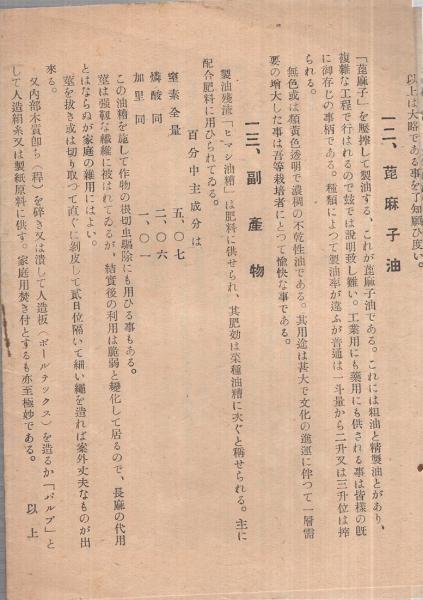 以上は大略である事を了知願ひ度い。
一二、蓖麻子油
「蓖麻子」を壓搾して製油する、これが蓖麻子油である。これには粗油と精製油とがあり、
複雜な工程で行はれるので玆では説明致し難い。工業用にも藥用にも供される事は皆樣の既
に御存じの事柄である。種類によつて製油率が違ふが普通は一斗量から二升又は三升位は搾
られる。
無色或は類黃色透明で濃稠の不乾性油である。其用途は甚大で文化の進運に伴つて一層需
要の增大した事は吾等栽培者にとつて愉快な事である。
一三、副產物
製油殘渣「ヒマシ油糟」は肥料に供せられ、其肥効は菜種油糟に次ぐと稱せられる。主に
配合肥料に用ひられてゐる。
百分中主成分は
窒素全量 五、〇七
燐酸同 二、〇六
加里同 一、〇一
この油糟を施して作物の根切虫驅除にも用ひる事もある。
莖は强靱な纎維に被はれてゐるが、結實後の利用は脆弱と變化して居るので、長麻の代用
とはならぬが家庭の雜用にはよい。
莖を拔き或は切り取つて直ぐに剝皮して貳日位隔いて細い繩を造れば案外丈夫なものが出
來る。
又内部木質卽ち（稈）を碎き又は潰して人造板（ボールテックス）を造るか「パルプ」と
して人造絹糸又は製紙原料に供す。家庭用焚き付とするも亦至極妙である。
以上